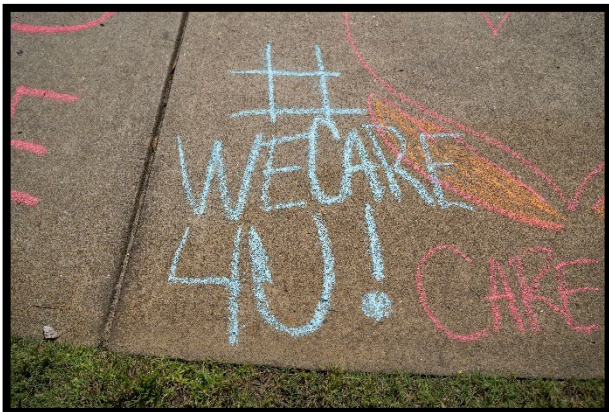 #
WECARE
4U!
CARE